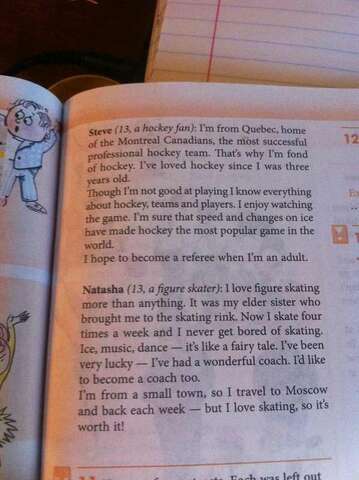 Steve (13, a hockey fan): I'm from Quebec, home
of the Montreal Canadians, the most successful
professional hockey team. That's why I'm fond
of hockey. I've loved hockey since I was three
years old.
Though I'm not good at playing I know everything
about hockey, teams and players. I enjoy watching
the game. I'm sure that speed and changes on ice
have made hockey the most popular game in the
world.
I hope to become a referee when I'm an adult.
Natasha (13, a figure skater): I love figure skating
more than anything. It was my elder sister who
brought me to the skating rink. Now I skate four
times a week and I never get bored of skating.
Ice, music, dance — it's like a fairy tale. I've been
very lucky — I've had a wonderful coach. I'd like
to become a coach too.
I'm from a small town, so I travel to Moscow
and back each week — but I love skating, so it's
worth it!
12
Each was left out